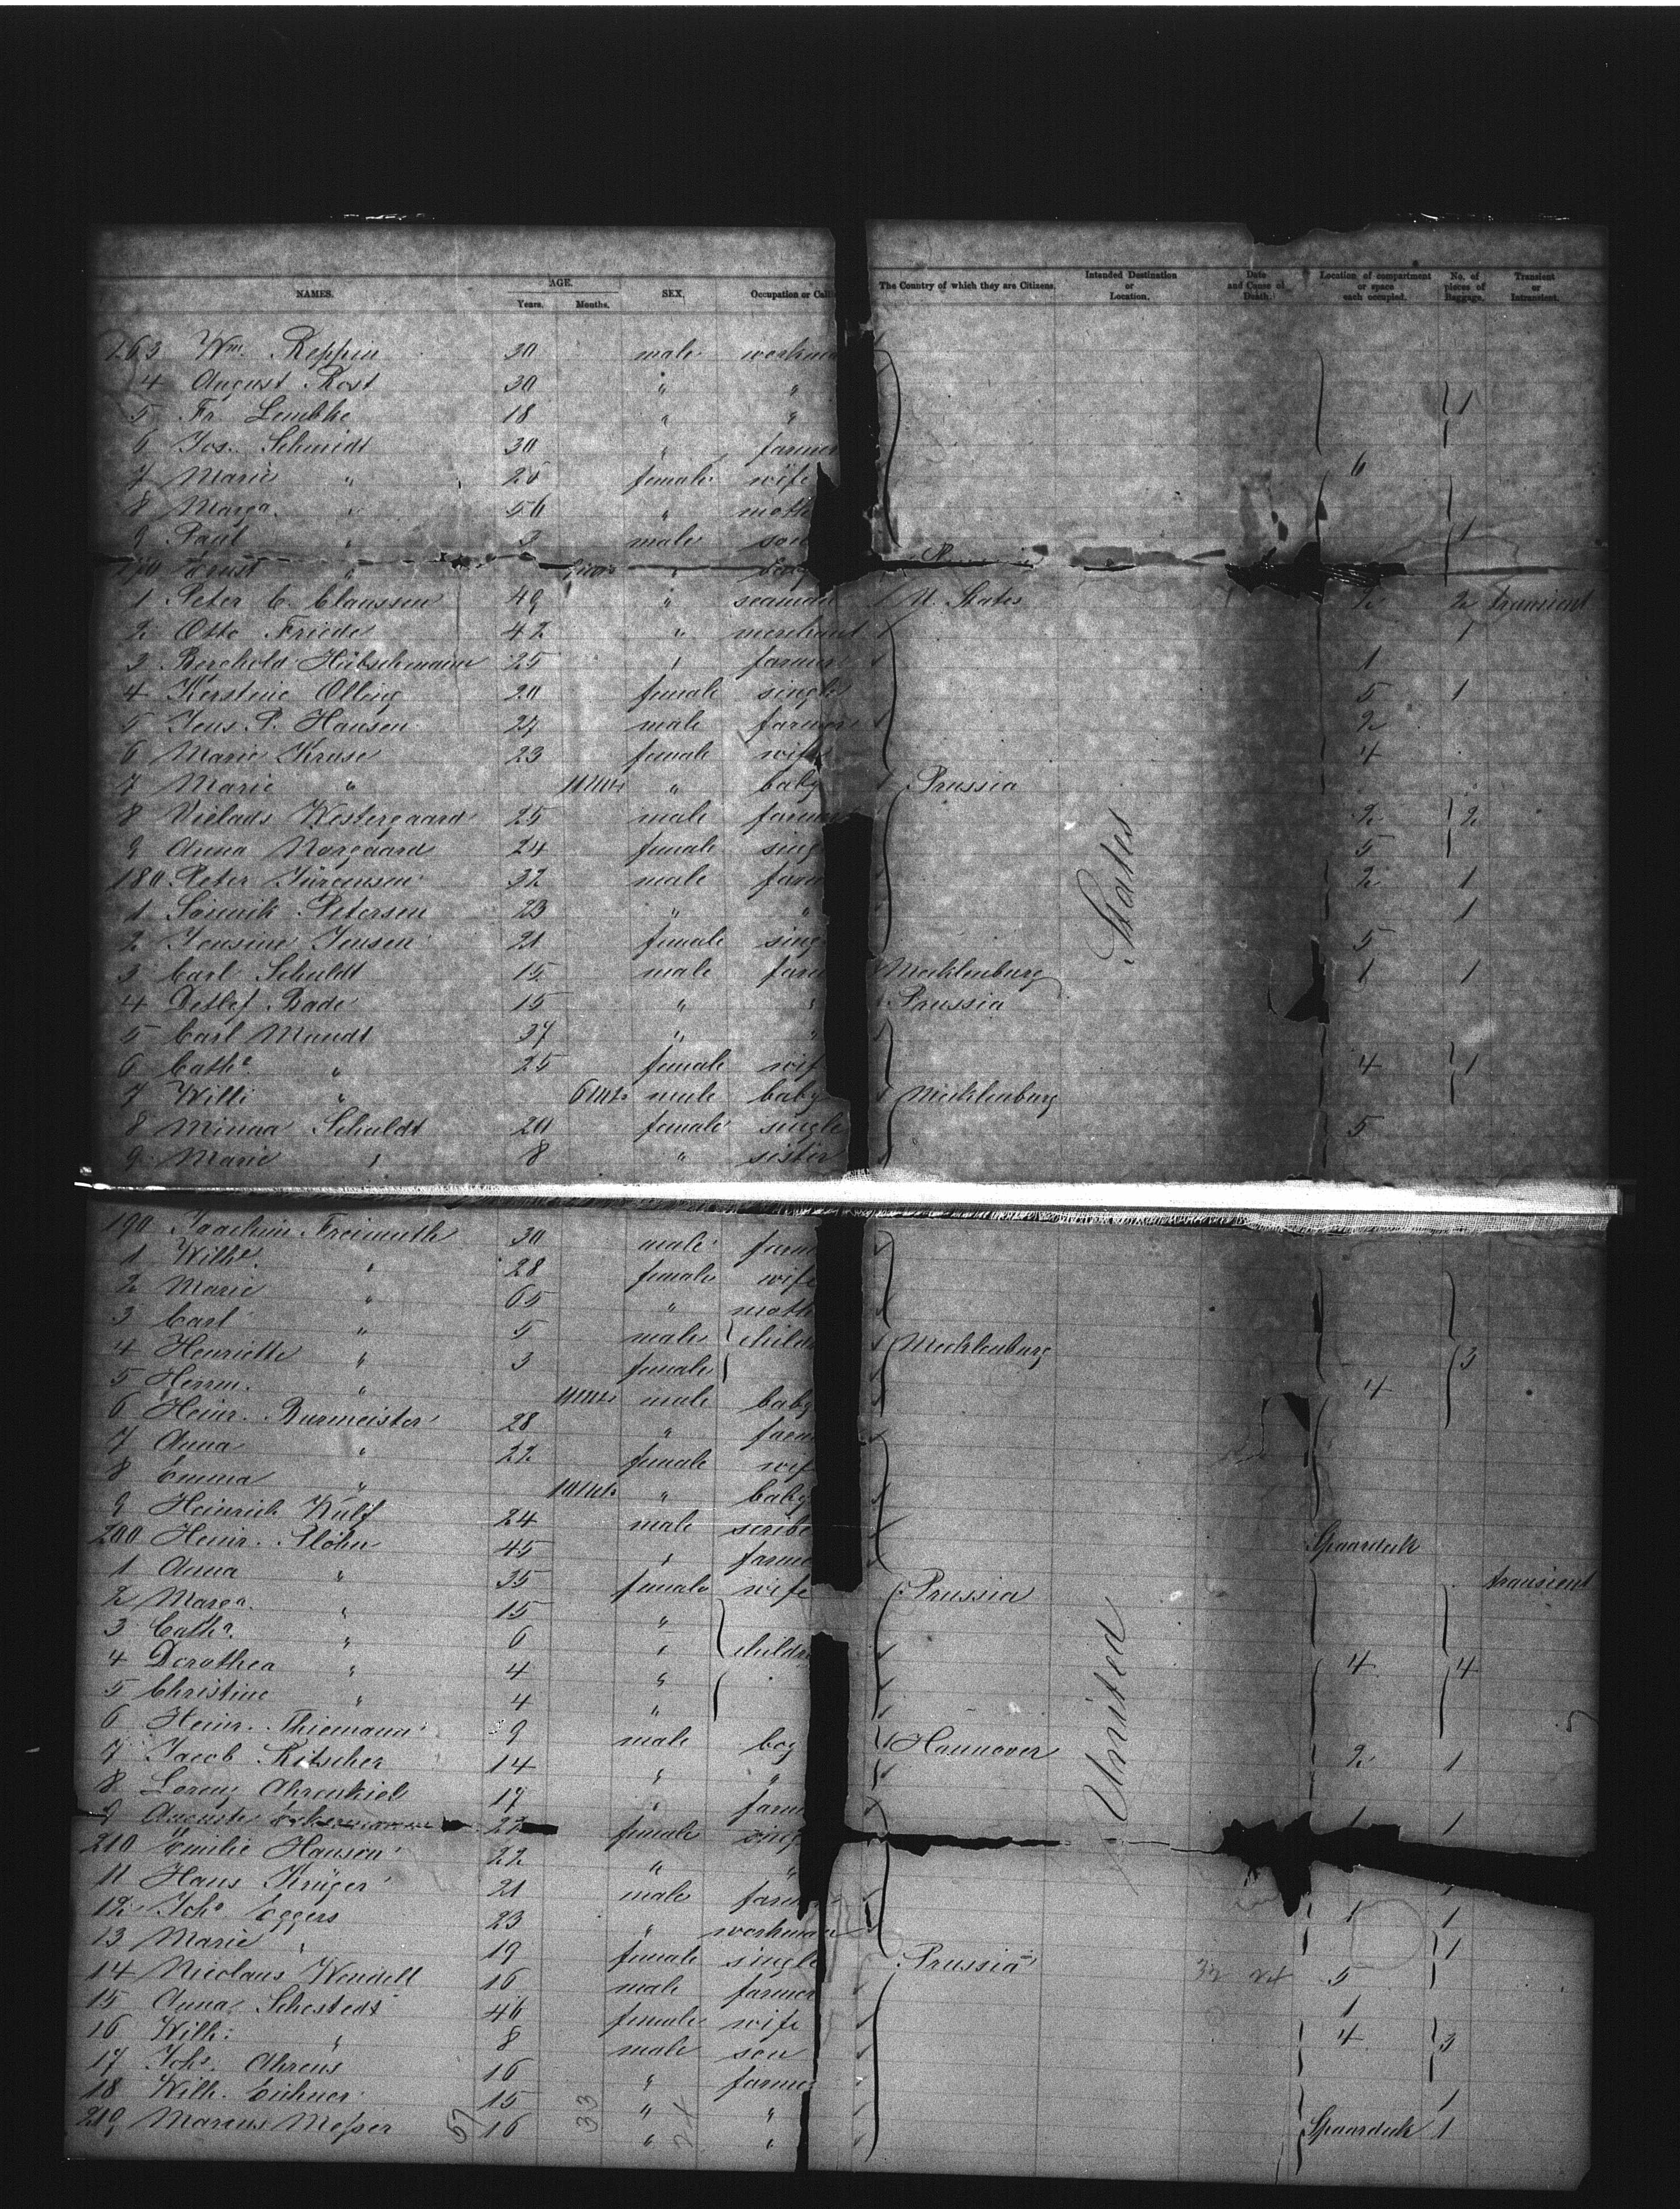 NAMES. AGE. Years. Months. SEX. Occupation or The Country of which they are Citizens. Intended Destination or Location. Date and Cause of Death. Location of compartment or space each occupied. No. of pieces of Baggage. Transient or Intransient.
163 Wm. Reppin 30 male
4 August Rost 30 " "
5 Fr. Lembke 18 " " 1
6 Jos. Schmidt 30 " farmer
7 Marie " female wife 6
8 Marga. " 56 "
9 Paul " 3 male son 1
170 Ernst "
1 Peter C. Claussen 49 " seaman U. States 2 2 transient
2 Otto Friede 42 " merchant 1
3 Berthold Hübschmann 25 " farmer 1
4 Kerstine Olling 20 female single 5 1
5 Jens P. Hansen 24 male farmer 2
6 Marie Kruse 23 female wife 4
7 Marie " " baby Prussia
8 Westergaard 25 male farmer 2 2
9 Anna Norgaard 24 female 5
180 Peter Jürgensen 32 male 2 1
1 Petersen 23 " " 1
2 Jensine Jensen 21 female 5
3 Carl Schuldt 15 male Mecklenburg 1 1
4 Detlef Bade 15 " " Prussia
5 Carl Mundt 37 " "
6 Catha " 25 female 4 1
7 Willi " 6 mts male baby Mecklenburg
8 Minna Schuldt 20 female single 5
9 Marie " 8 " sister
190 Joachim Freimuth 30 male
1 Wilhe. " 28 female wife
2 Marie " 65 "
3 Carl " 5 male Mecklenburg
4 Henriette " 3 female 3
5 Herm. " male baby 4
6 Heinr. Burmeister 28 "
7 Anna " 22 female
8 Emma " 10 mts " baby
9 Heinrich Wulf 24 male scribe
200 Heinr. Plöhn 45 " Spaardeck
1 Anna " 35 female wife Prussia transient
2 Marga. " 15 "
3 Catha. " 6 "
4 Dorothea " 4 " 4 4
5 Christine " 4 "
6 Heinr. Thiemann 9 male boy Hannover
7 Jacob Kitscher 14 " " 2 1
8 Lorenz Ahrenkiel 17 "
9 Auguste female 1 1
210 Emilie Hansen 22 " "
11 Hans Krüger 21 male
12 Johs Eggers 23 " workman 1 1
13 Marie " 19 female single Prussia 1
14 Nicolaus Wendell 16 male farmer 5
15 Anna Schestedt 46 female wife 1
16 Wilh: " 8 male son 4 3
17 Johs. Ahrens 16 " farmer
18 Wilh. Eichner 15 " " 1
219 Marcus Messer 16 " " Spaardeck 1
United States
57 33 24